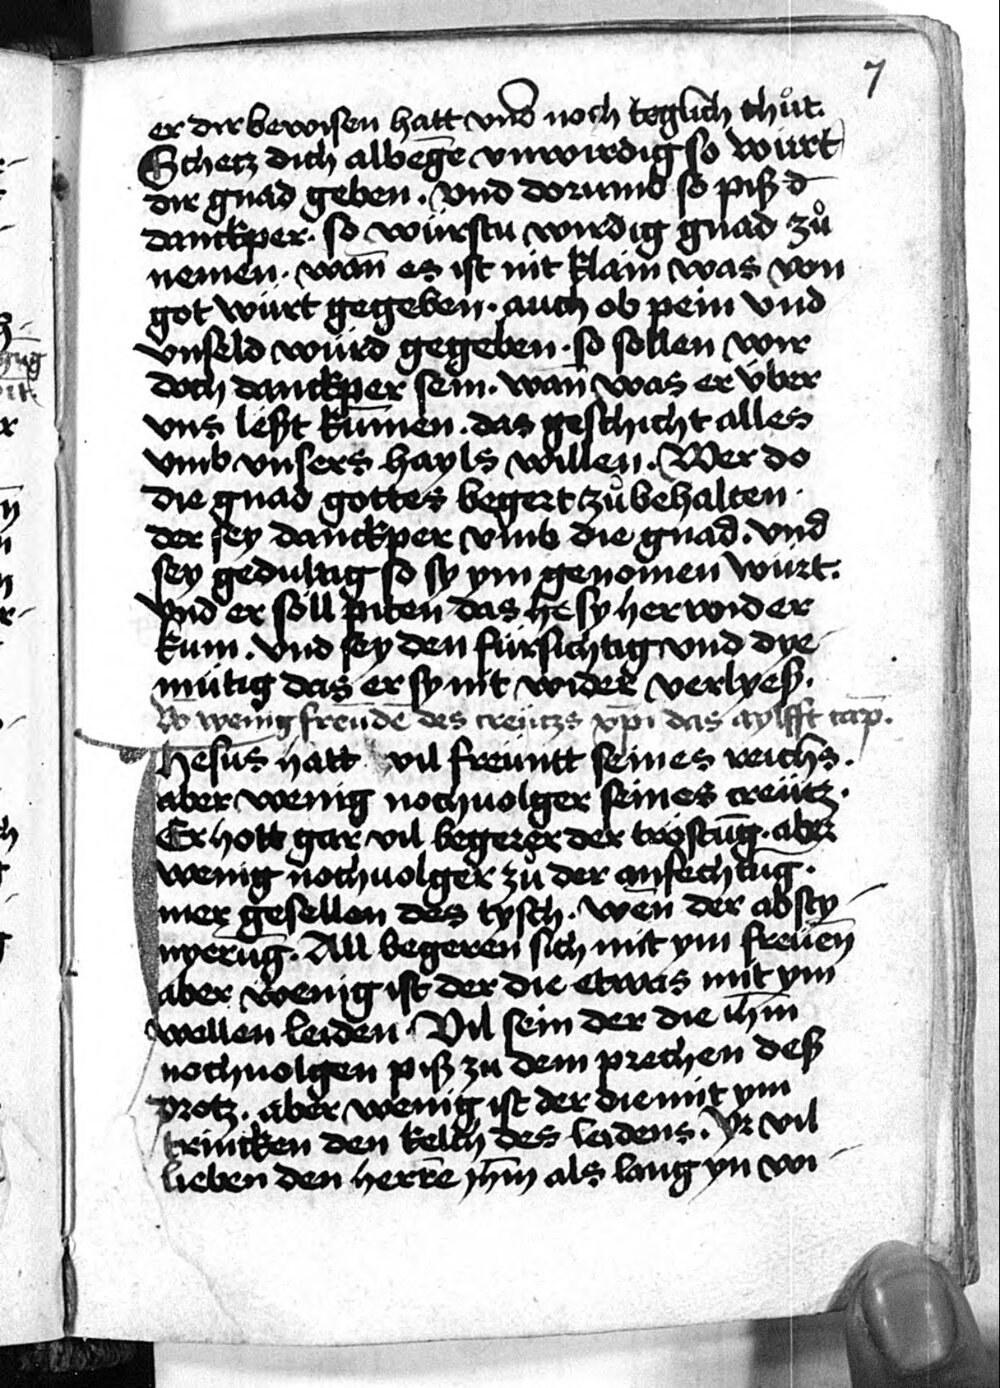 7
er dir bewisen hatt vnd noch teglich thůt.
Schetz dich albege͞ vnwirdig so würt
dir gnad geben. vnd dorumb so piß d͞
danckper. so würstu wirdig gnad zů
nemen. wan͞ es ist nit klain was von
got würt gegeben. auch ob pein vnd
vnseld würd gegeben. so sollen wir
doch danckper sein. wan͞ was er über
vns leßt ku͞men. das geschicht alles
vmb vnsers hayls willen. Wer do
die gnad gottes begert zů behalten.
der sey danckper vmb die gnad. vnd
sey gedultig so sy ym genomen würt.
vnd er soll piten das sy her wider
kum. vnd sey den fürsichtig vnd dye
mütig das er sy nit wider verlyeß.
Vo͞ wenig freu͞de͞ des creützs xp͞i das aylfft cap͞.
Hesus hatt vil freuntt seines reichs.
aber wenig nochuolger seines creütz.
Er hott gar vil begerer der tröstu͞g. aber
wenig nochuolger zů der anfechtu͞g.
mer gesellen des tysch. wen͞ der absty
nyeru͞g. All begeren sich mit ym freüe͞n
aber wenig ist der die etwas mit ym
wellen leiden. Vil sein der die ih͞m
nochuolgen piß zu dem prechen deß
protz. aber wenig ist der die mit ym
trincken den kelch des leidens. Yr vil
lieben den herre͞ jh͞m als lang yn wi